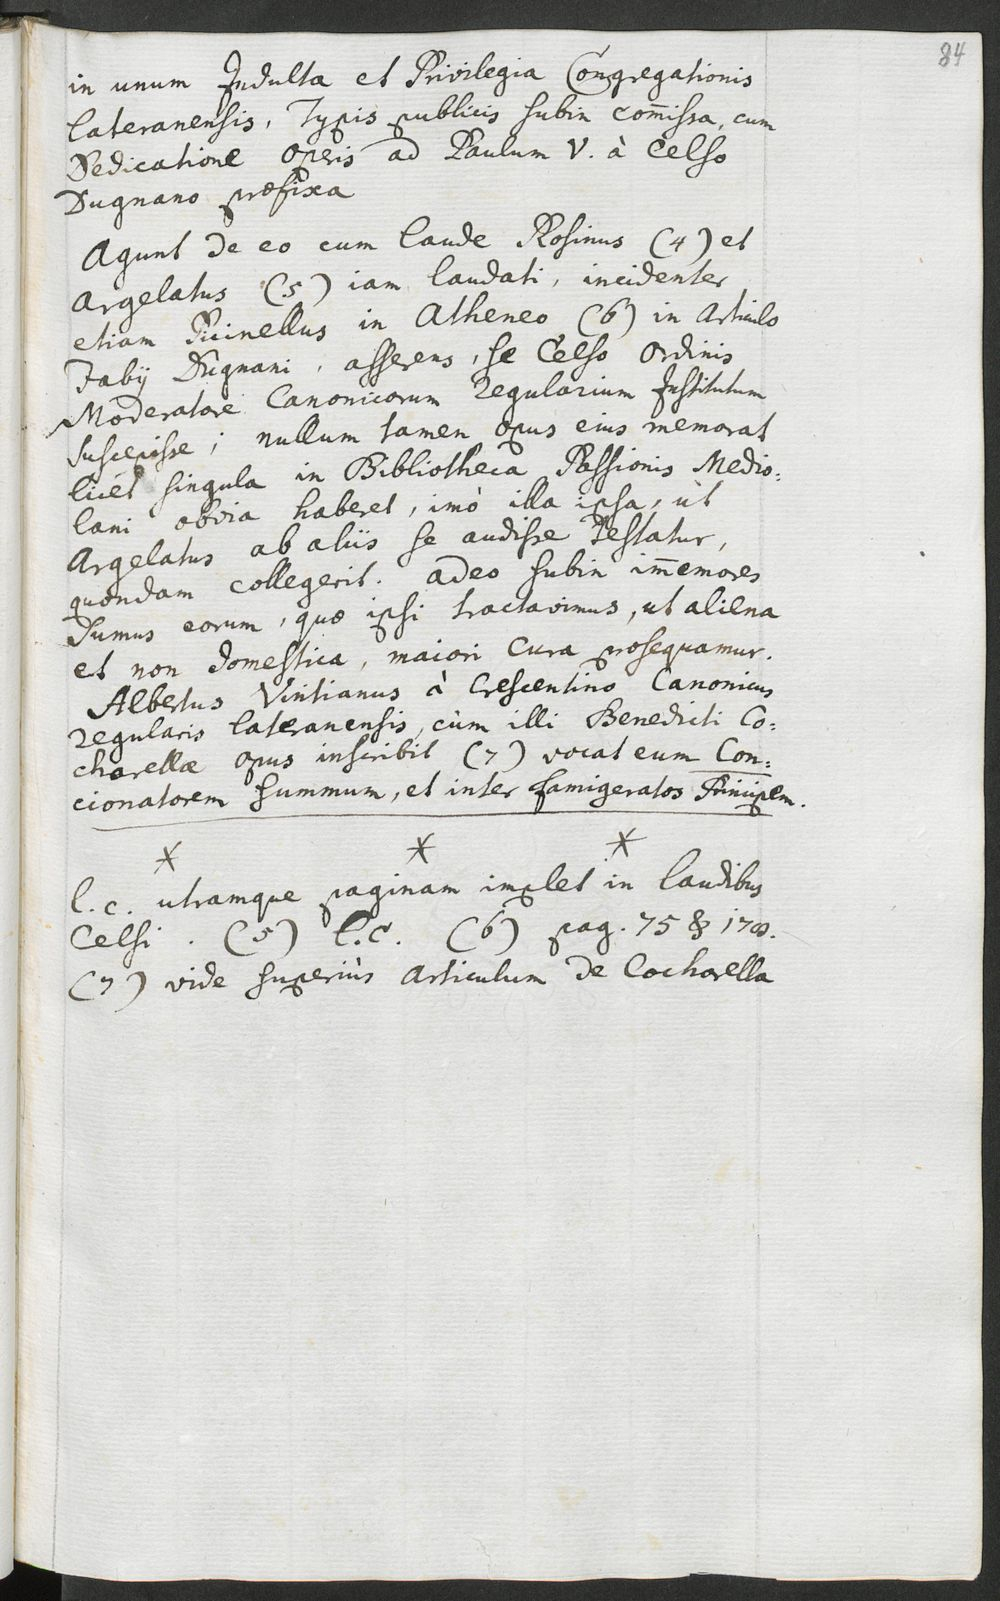 84
in unum Indulta et Privilegia Congregationis
Lateranensis, Typis publicis subin com̄issa, cum
Dedicatione operis ad Paulum V. à Celso
Dugnano præfixa
Agunt de eo cum laude Rosinus (4) et
Argelatus (5) iam laudati, incidenter
etiam Picinellus in Atheneo (6) in Articulo
Fabij Dugnani, asserens, se Celso Ordinis
Moderatore Canonicorum Regularium Institutum
suscepisse; nullum tamen opus eius memorat
licèt singula in Bibliotheca Passionis Medio:
lani obvia haberet, imò illa ipsa, ùt
Argelatus ab aliis se audisse testatur,
quondam collegerit. adeo subin im̄emores
sumus eorum, quæ ipsi tractavimus, ut aliena
et non domestica, maiori cura prosequamur.
Albertus Vintianus à Crescentino Canonicus
regularis Lateranensis, cùm illi Benedicti Co:
charellæ opus inscribit (7) vocat eum Con:
cionatorem summum, et inter famigeratos Principem.
* * *
l.c. utramque paginam implet in laudibus
Celsi. (5) l.c. (6) pag. 75 & 170.
(7) vide superiùs Articulum de Cocharella